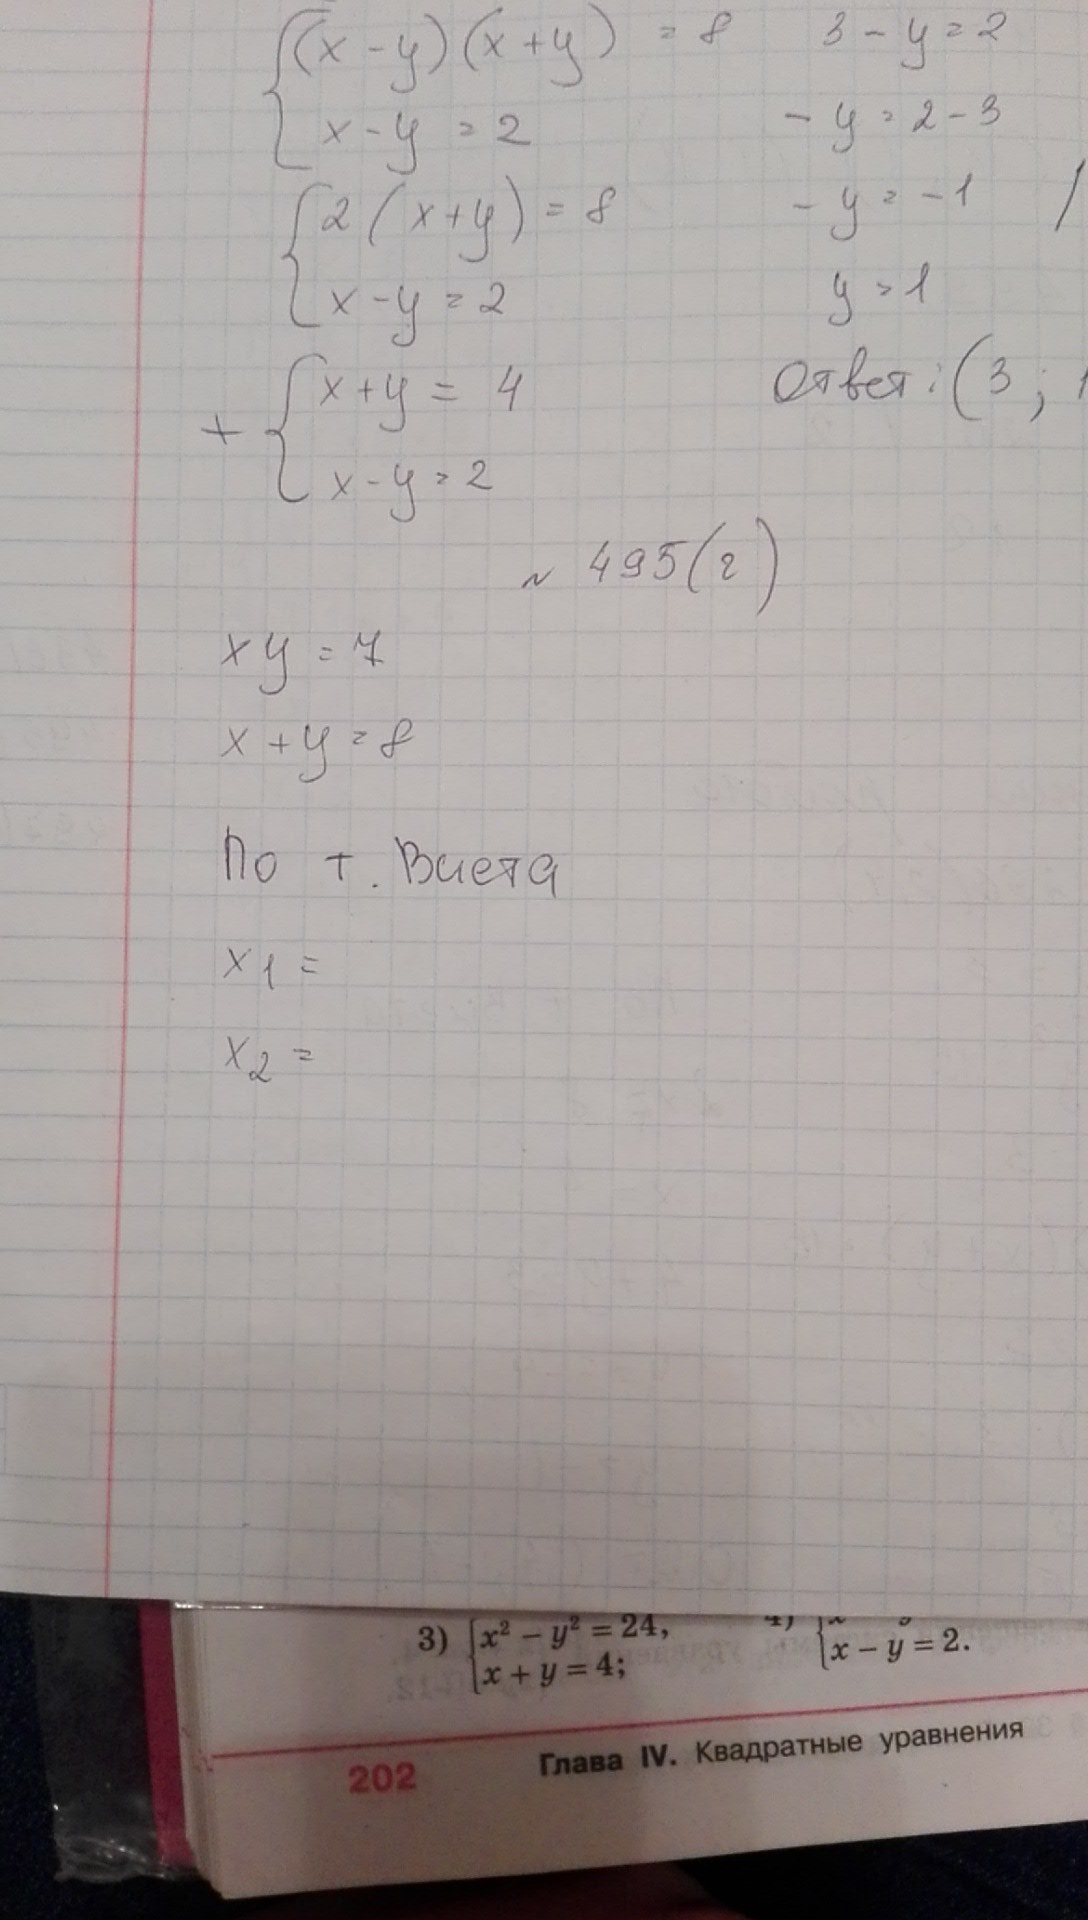 {(x - y)(x + y) = 8
x - y = 2
{2(x + y) = 8
x - y = 2
+ {x + y = 4
x - y = 2
3 - y = 2
- y = 2 - 3
- y = -1 /
y = 1
Ответ: (3; 1
~ 495(2)
xy = 7
x + y = 8
По т. Виета
x1 =
x2 =
3) {x² - y² = 24,
x + y = 4;
4) {
x - y = 2.
202 Глава IV. Квадратные уравнения